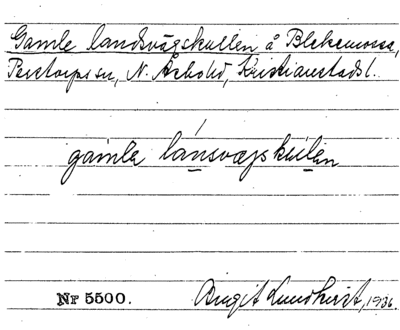 Gamle landsvägskullen å Blekemossa,
Perstorps sn, N. Åsbohd, Kristianstads l.
gamle lánsvæjskulen
Nr 5500.
Birgit Lundkvist, 1936.